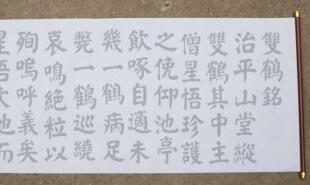 雙鶴銘
治平山堂縱
雙鶴其中主
僧星悟珍護
之俛仰池亭
飲啄自適未
幾一鶴病足
斃一鶴巡繞
哀鳴絶粒以
殉嗚呼義矣
星悟也而